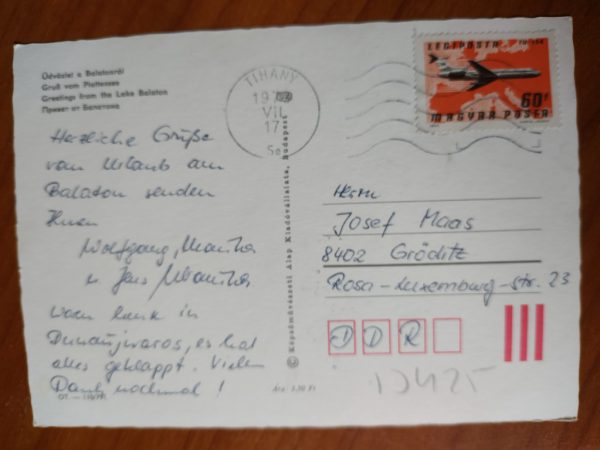 Üdvözlet a Balatonról
Gruß vom Plattensee
Greetings from the Lake Balaton
Привет от Балатона
Herzliche Grüße
vom Urlaub am
Balaton senden
Ihnen
Wolfgang,
u Jens
waren in
Dunaujvaros, es hat
alles geklappt. Vielen
Dank nochmal!
Ára: 1,50 Ft
© Képzőművészeti Alap Kiadóvállalata, Budapest
TIHANY
VII
17
LÉGIPOSTA
60f
MAGYAR POSTA
Herrn
Josef Maas
8402 Gröditz
Rosa-Luxemburg-Str. 23
D D R